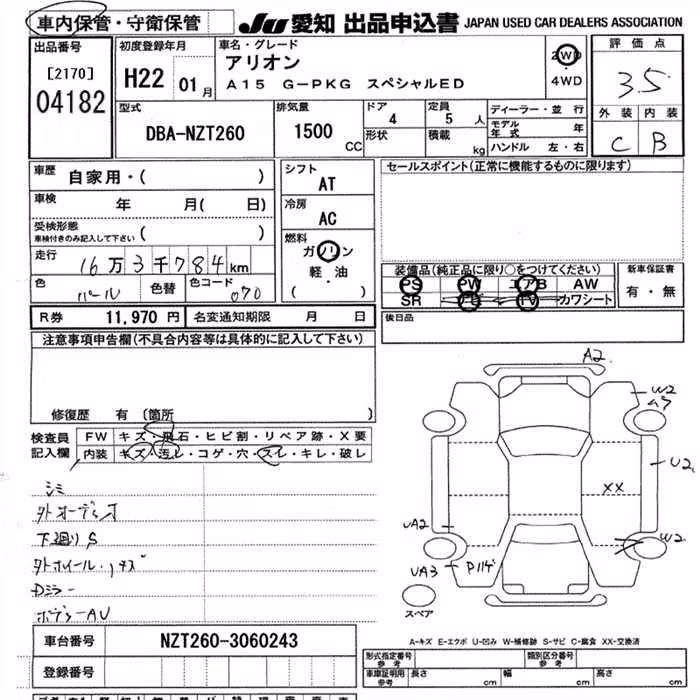 車内保管・守衛保管
JU 愛知 出品申込書 JAPAN USED CAR DEALERS ASSOCIATION
出品番号
[2170]
04182
初度登録年月
H22 01月
車名・グレード
アリオン
A15 G-PKG スペシャルED
2WD
・
4WD
評価点
3.5
外装 内装
C B
型式
DBA-NZT260
排気量
1500 CC
ドア
4
定員
5 人
形状
積載
kg
ディーラー・並 行
モデル年式 年
ハンドル 左・右
車歴
自家用・( )
車検
年 月( 日)
受検形態
車検付きのみ記入して下さい ( )
走行
16万3千784km
色
パール
色替
色コード
070
シフト
AT
冷房
AC
燃料
ガソリン
軽・油
( )
セールスポイント(正常に機能するものに限ります)
装備品(純正品に限り○をつけてください)
PS PW エアB AW
SR ナビ TV カワシート
新車保証書
有・無
後日品
R券 11,970円 名変通知期限 月 日
注意事項申告欄(不具合内容等は具体的に記入して下さい)
修復歴 有 〔箇所 〕
検査員
記入欄
FW キズ・飛石・ヒビ割・リペア跡・X要
内装 キズ・汚レ・コゲ・穴・スレ・キレ・破レ
シミ
外オーディオ
下廻りS
外ホイール・ナズ
Dミラー
ボデーAU
A2
W2
U2
XX
W2
UA2
UA3
スペア
A-キズ E-エクボ U-凹み W-補修跡 S-サビ C-腐食 XX-交換済
車台番号 NZT260-3060243
登録番号
形式指定番号
参考
類別区分番号
参考
車庫証明用
参考
長さ cm 幅 cm 高さ cm